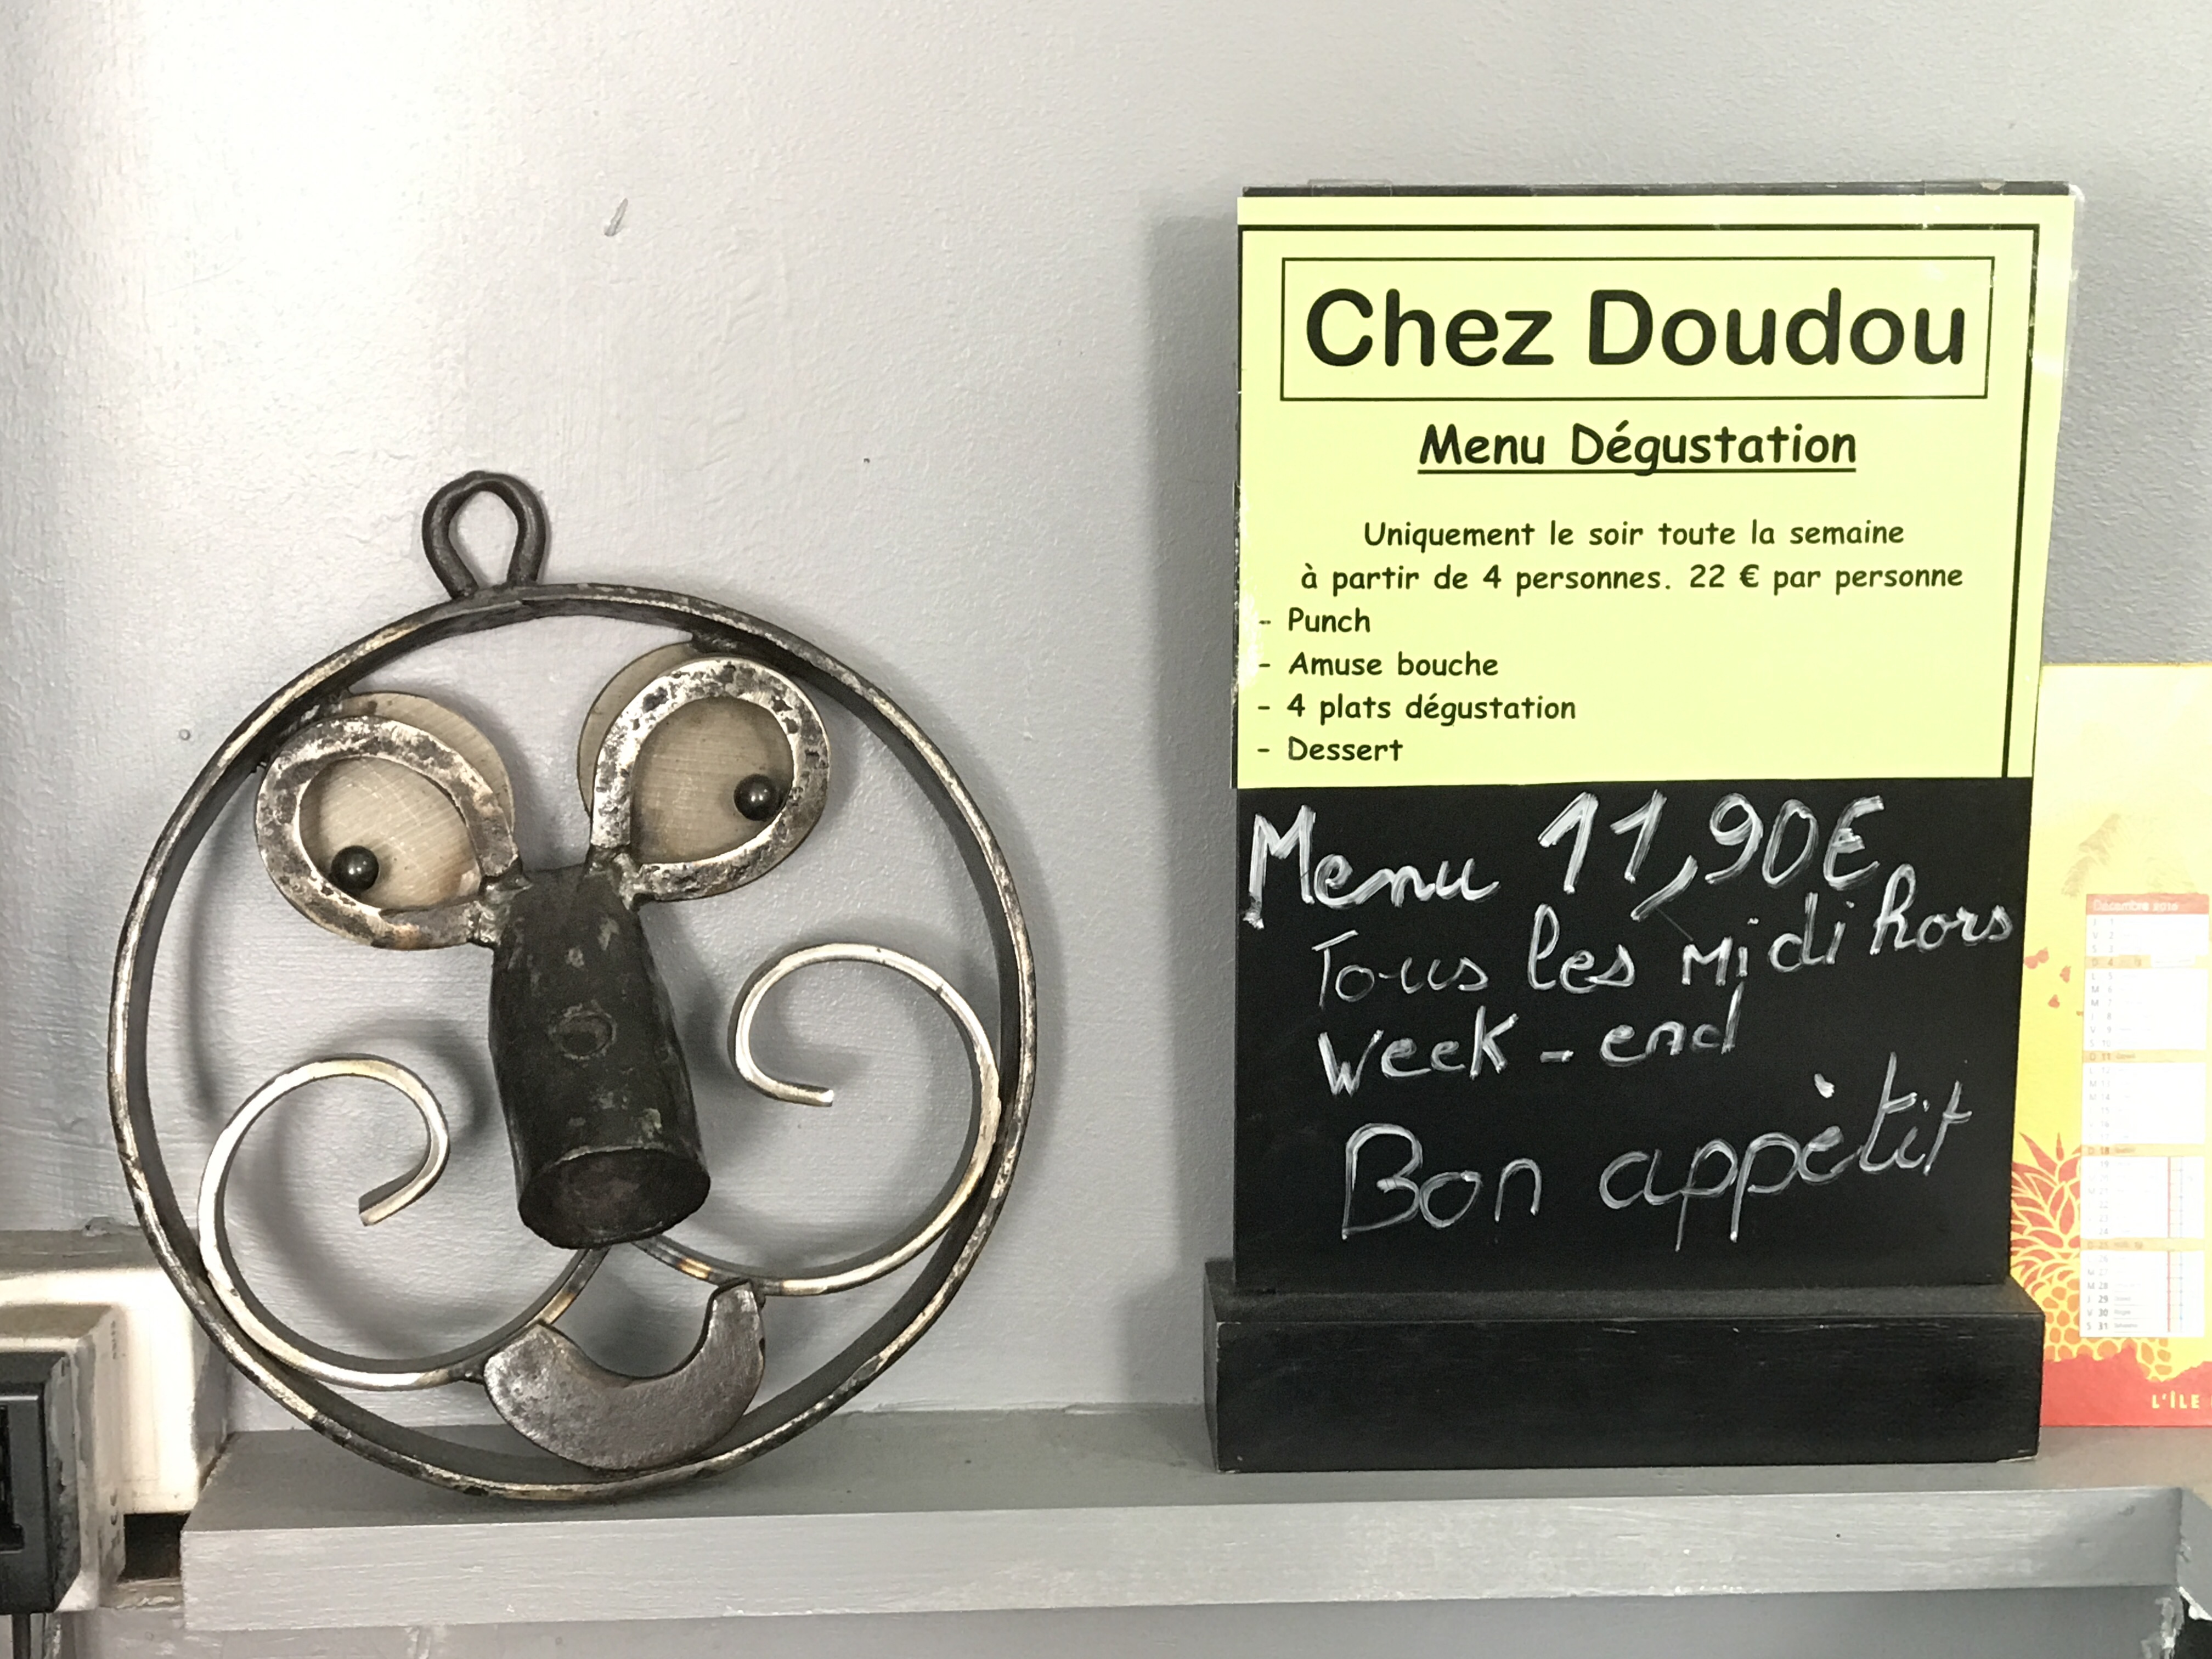 Chez Doudou
Menu Dégustation
Uniquement le soir toute la semaine
à partir de 4 personnes. 22 € par personne
- Punch
- Amuse bouche
- 4 plats dégustation
- Dessert
Menu 11,90€
Tous les Midi hors
Week-end
Bon appètit
Décembre 2016
L'ÎLE